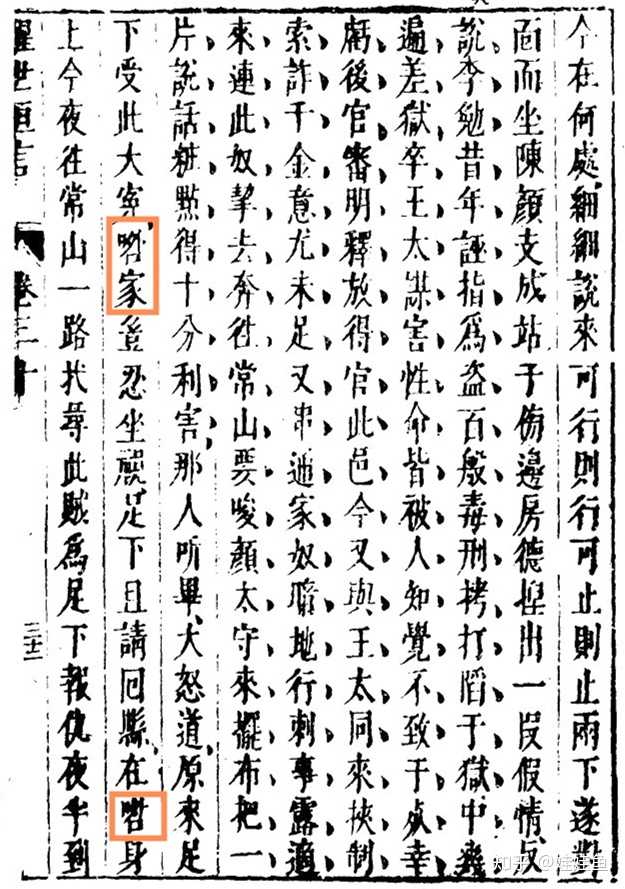 今在何處細細說來可行則行可止則止兩下遂對
面而坐陳顏支成站于傍邊房德捏出一段假情反
說李勉昔年誣指爲盜百般毒刑拷打陷于獄中幾
遍差獄卒王太謀害性命皆被人知覺不致于死幸
虧後官審明釋放得官此邑今又與王太同來挾制
索詐千金意尤未足又串通家奴暗地行刺事露適
來連此奴挈去奔往常山要唆顏太守來擺布把一
片說話粧點得十分利害那人听畢大怒道原來足
下受此大寃喒家豈忍坐視足下且請回縣在喒身
上今夜往常山一路找尋此賊爲足下報仇夜半到
醒世恒言 卷三十
知乎 @娃娃鱼